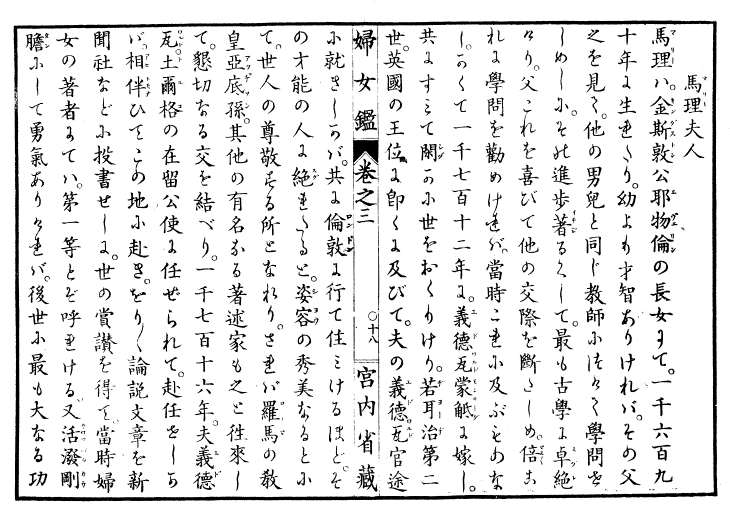 馬理夫人
馬理ハ。金斯敦公耶物倫の長女にて。一千六百九
十年に生まれたり。幼よりも才智ありければ。その父
之を見て。他の男兒と同じ教師につけて學問せ
しめしに。その進歩著るくして。最も古學に卓絶
せり。父これを喜びて他の交際を斷たしめ。倍これ
に學問を勸めければ。當時これに及ぶものな
し。かくて一千七百十二年に。義德瓦蒙觝に嫁し。
共にすみて閑かに世をおくりけり。若耳治第二
世英國の王位に卽くに及びて。夫の義德瓦官途
婦女鑑 卷之三 ○十八 宮内省藏
に就きしかば。共に倫敦に行て住みけるほど。そ
の才能の人に絶れたると。姿容の秀美なるとに
て。世人の尊敬する所となれり。されば羅馬の敎
皇亞底孫。其他の有名なる著述家も之と徃來し
て。懇切なる交を結べり。一千七百十六年。夫義德
瓦土爾格の在留公使に任ぜられて。赴任せしか
ば相伴ひてこの地に赴き。をりく論説文章を新
聞社などに投書せしに。世の賞讃を得て當時婦
女の著者にてハ。第一等とぞ呼れける。又活潑剛
膽にして勇氣ありければ。後世に最も大なる功